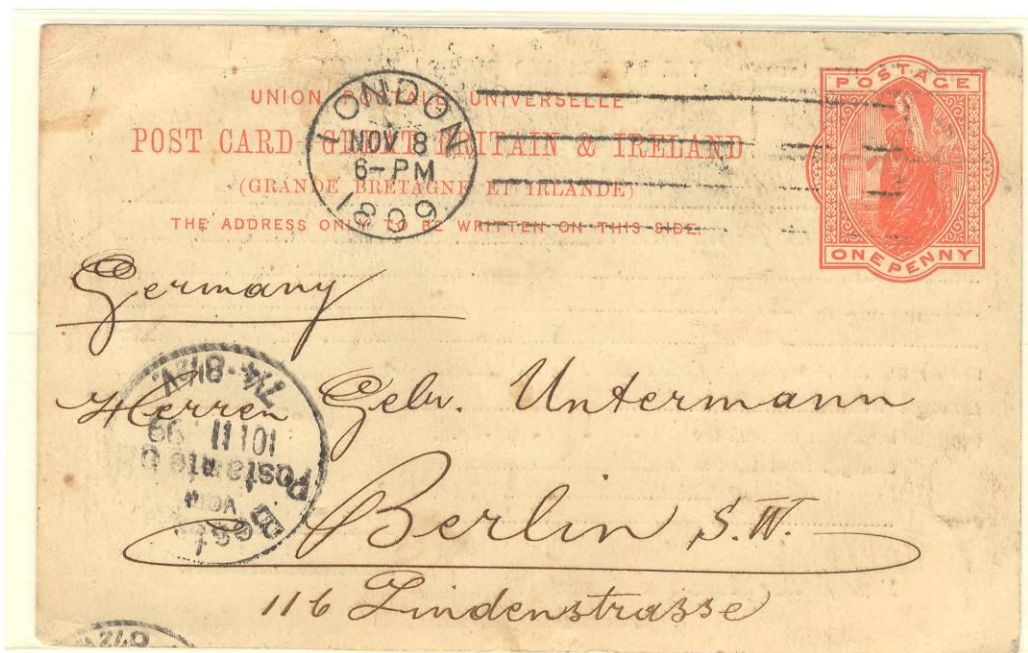 POSTAGE
UNION POSTALE UNIVERSELLE
POST CARD GREAT BRITAIN & IRELAND
(GRANDE BRETAGNE ET IRLANDE)
THE ADDRESS ONLY TO BE WRITTEN ON THIS SIDE.
LONDON
NOV 8
6-PM
1899
ONE PENNY
Germany
Herren Gebr. Untermann
Berlin S.W.
116 Lindenstrasse
vom
Postamte
10 11 99